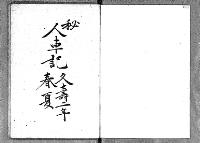 秘
人車記
久壽二年
春夏